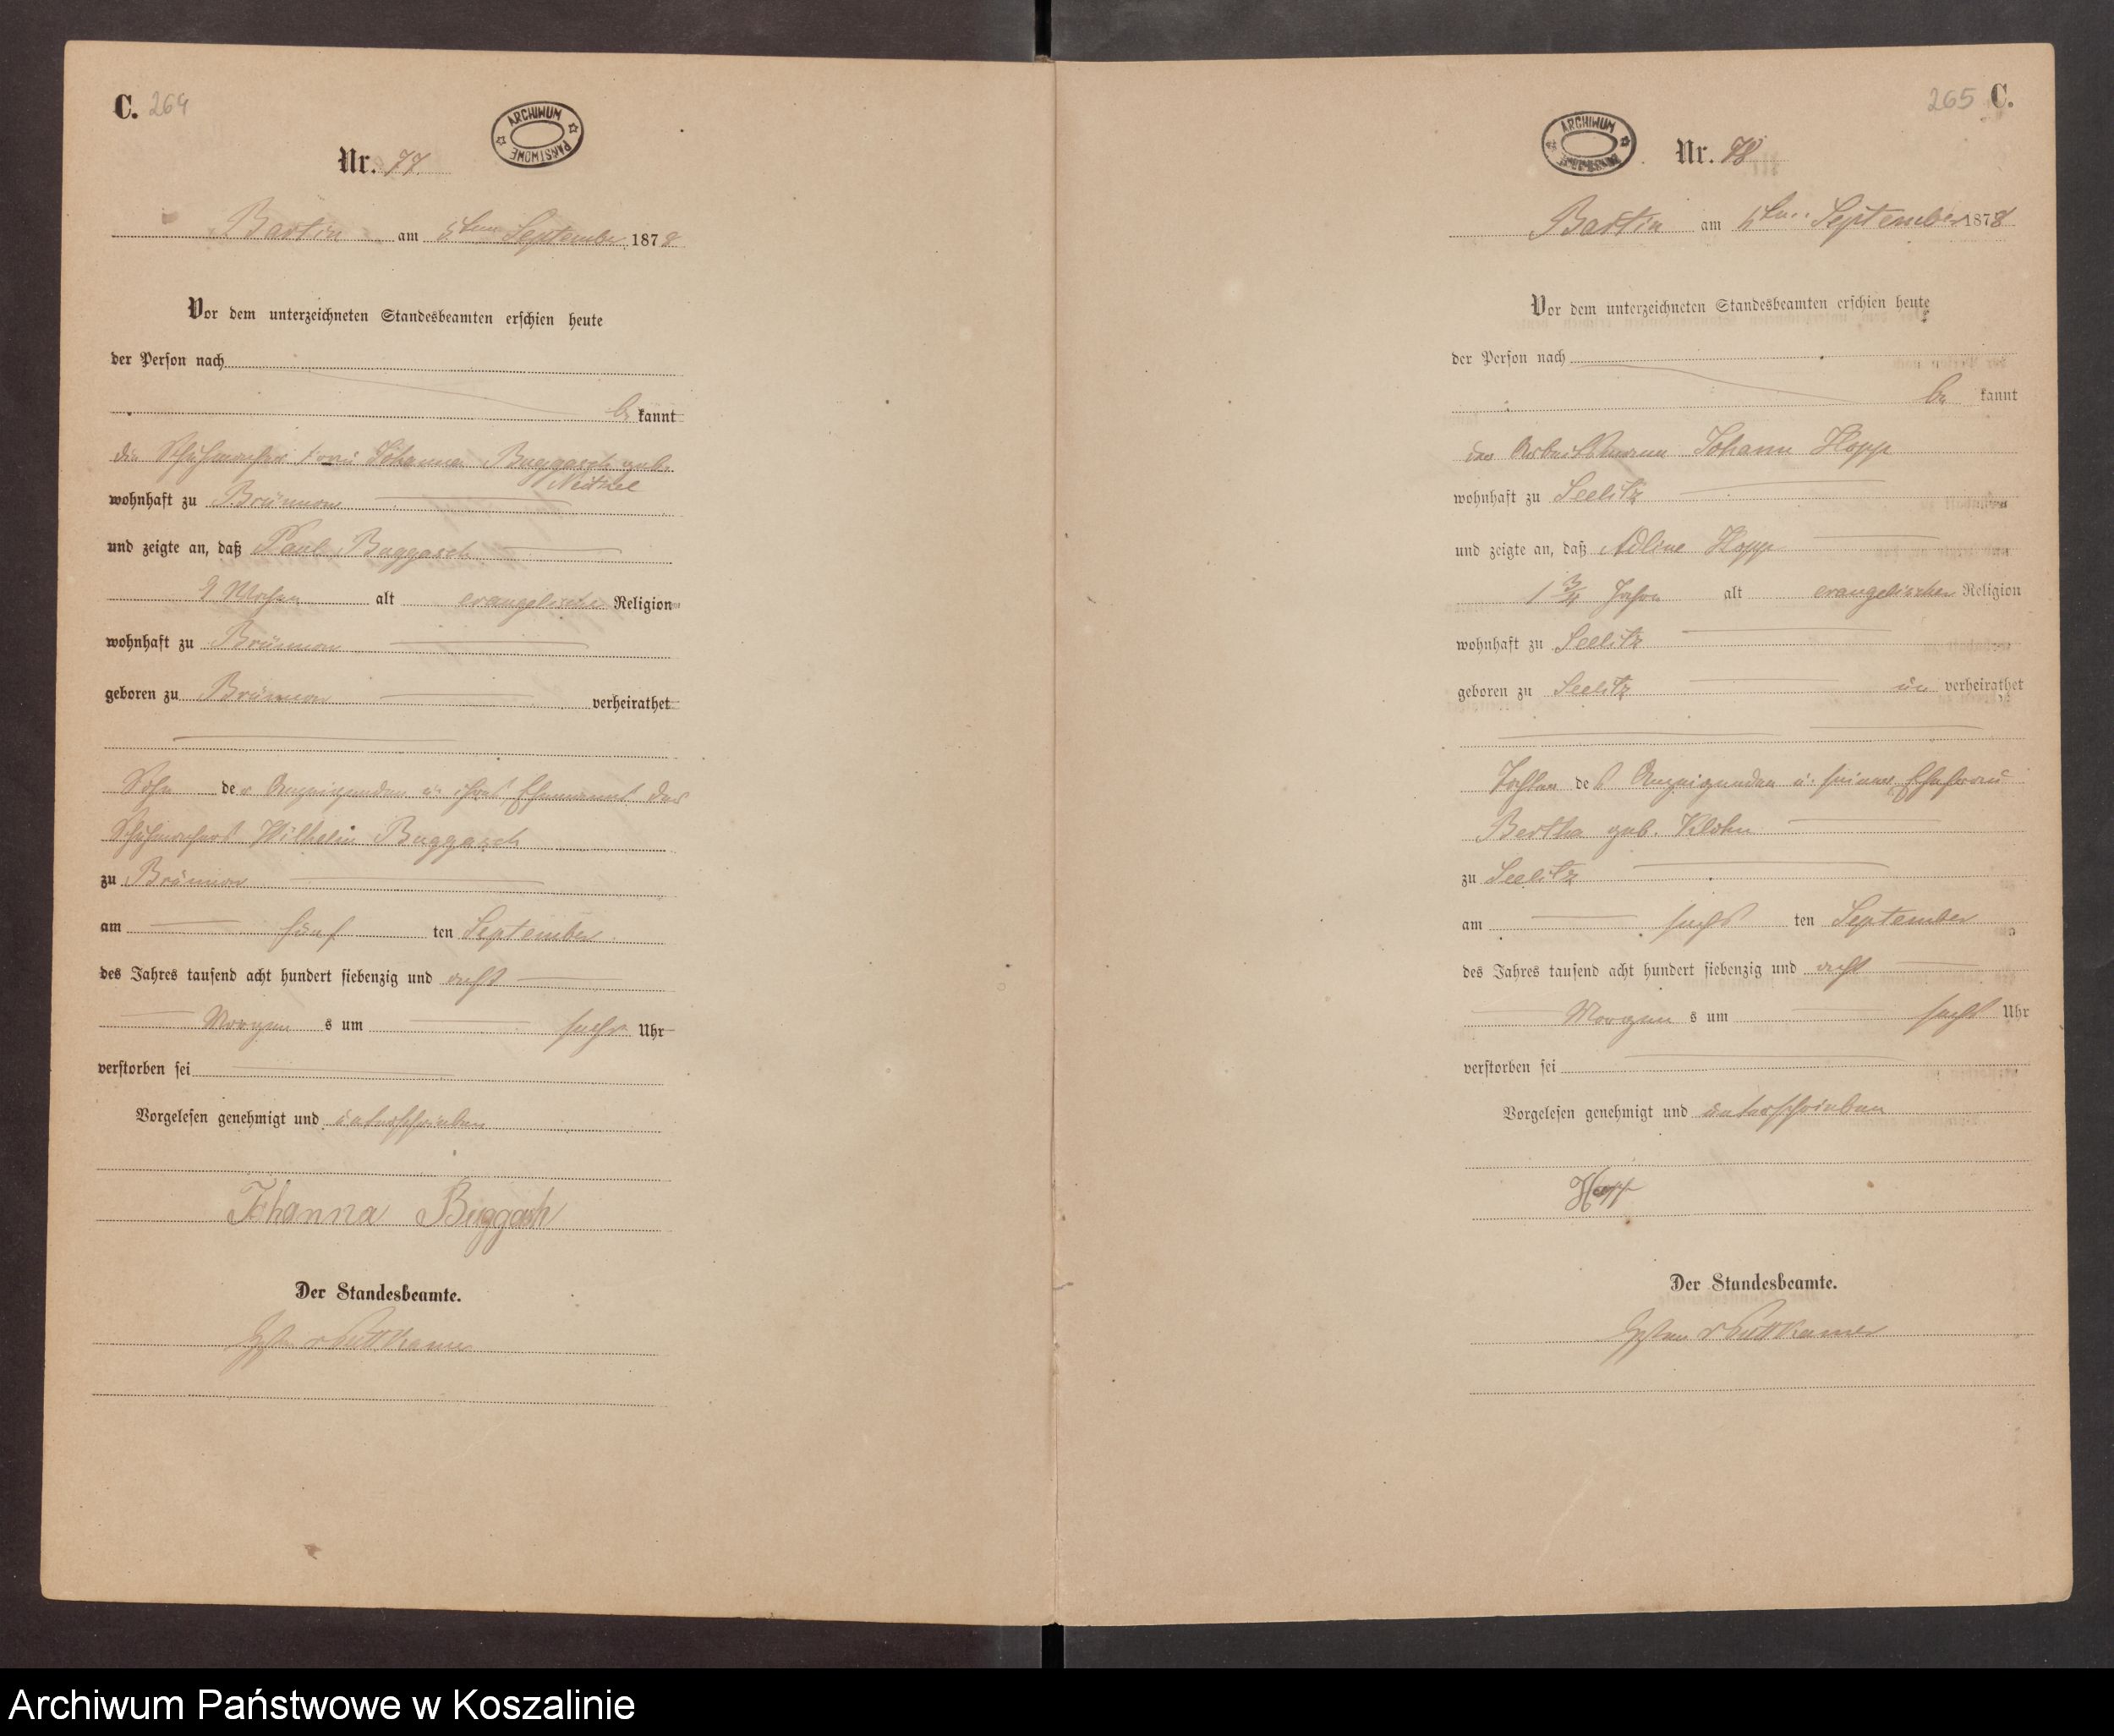 C. 264
ARCHIWUM PAŃSTWOWE
Nr. 77.
Bartin am 5ten September 1878
Vor dem unterzeichneten Standesbeamten erschien heute
der Person nach
be kannt
die Schuhmacher Frau Johanna Buggasch geb.
Neitzel
wohnhaft zu Brünnow
und zeigte an, daß Paul Buggasch
9 Wochen alt evangelischer Religion
wohnhaft zu Brünnow
geboren zu Brünnow verheirathet
Sohn der Anzeigenden u. ihres Ehemannes des
Schuhmachers Wilhelm Buggasch
zu Brünnow
am fünf ten September
des Jahres tausend acht hundert siebenzig und acht
Morgen s um sechs Uhr
verstorben sei
Vorgelesen genehmigt und unterschrieben
Johanna Buggash
Der Standesbeamte.
v Puttkamer
265 C.
ARCHIWUM
Nr. 78
Bartin am 6ten September 1878
Vor dem unterzeichneten Standesbeamten erschien heute
der Person nach
be kannt
der Arbeitsmann Johann Hopp
wohnhaft zu Seelitz
und zeigte an, daß Adline Hopp
1 3/4 Jahre alt evangelischer Religion
wohnhaft zu Seelitz
geboren zu Seelitz un verheirathet
Tochter des Anzeigenden u. seiner Ehefrau
Bertha geb. Klohn
zu Seelitz
am sechs ten September
des Jahres tausend acht hundert siebenzig und acht
Morgen s um sechs Uhr
verstorben sei
Vorgelesen genehmigt und unterschrieben
Hopp
Der Standesbeamte.
v Puttkamer
Archiwum Państwowe w Koszalinie